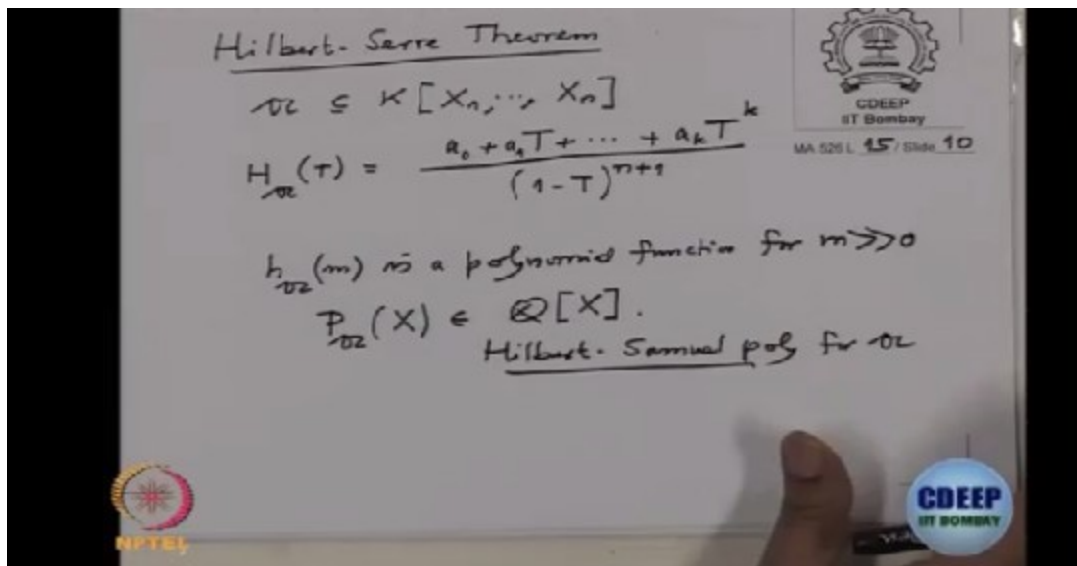 Hilbert-Serre Theorem
𝔞 ⊆ K[X_n, ..., X_n]
H_𝔞(T) = (a_0 + a_1T + ... + a_kT^k) / (1-T)^{n+1}
h_𝔞(m) is a polynomial function for m>>0
P_𝔞(X) ∈ ℚ[X].
Hilbert-Samuel poly for 𝔞
CDEEP
IIT Bombay
MA 526 L 15 / Slide 10
NPTEL
CDEEP
IIT BOMBAY